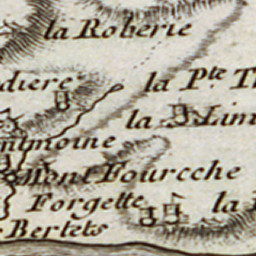 la Roberie
diere
la Pte Th
la Lim
ntmoine
Mont Fourcche
Forgette
la
Bertets